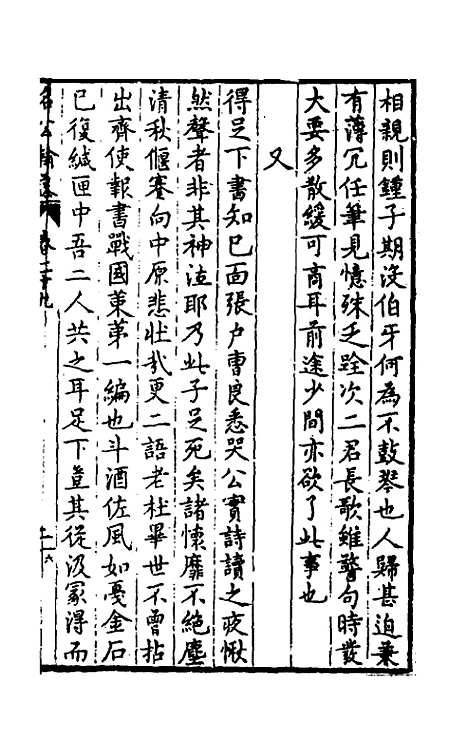 相親則鍾子期沒伯牙何為不鼓琴也人歸甚迫兼
有薄冗任筆見憶殊乏詮次二君長歌雖警句時發
大要多散緩可商耳前途少間亦欲了此事也
又
得足下書知已面張户曹良悉哭公實詩讀之夜愀
然聲者非其神泣耶乃此子足死矣諸懷靡不絕塵
清秋偃蹇向中原悲壯哉更二語老杜畢世不曾拈
出齊使報書戰國策第一編也斗酒佐風如戞金石
已復緘匣中吾二人共之耳足下豈其從汲冢得而
名公翰藻 卷二十九